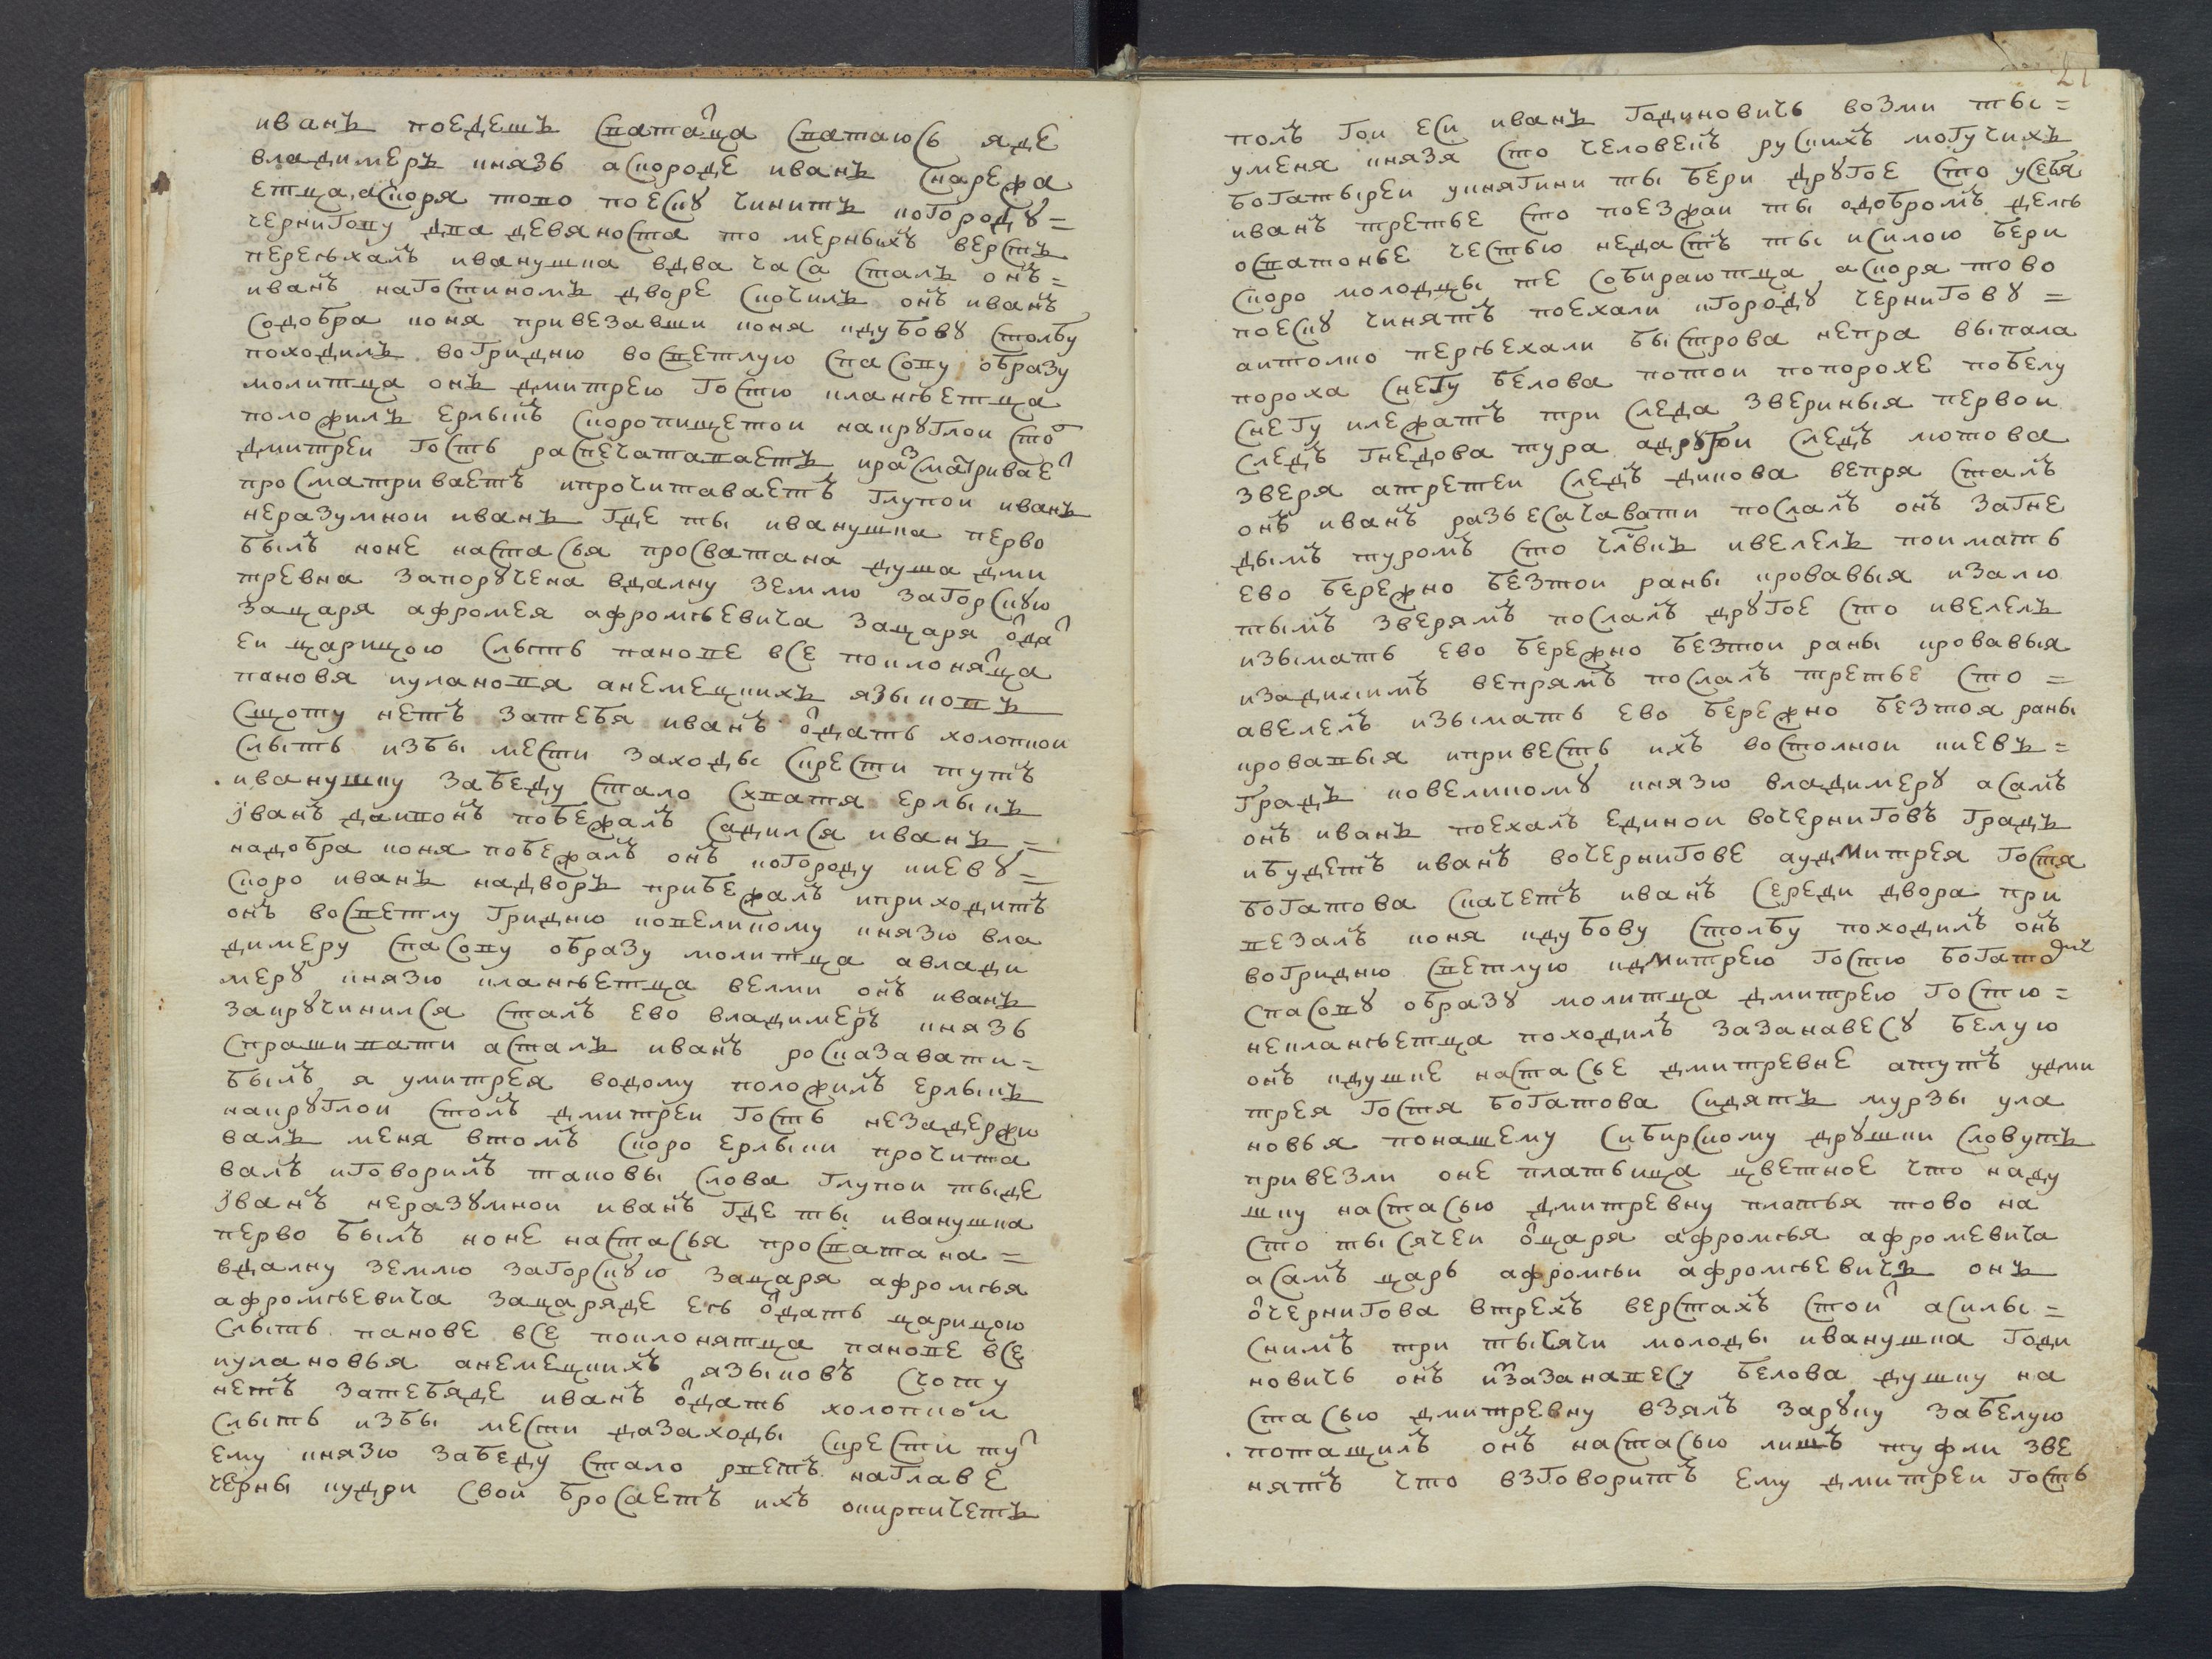 иванъ поедешъ сватаца сватаюсь яде
владимеръ князь аскороде иванъ снарежа
етца, аскоря тово поеску чинитъ когороду =
чернигову два девяноста то мерныхъ верстъ
переехалъ иванушка вдва часа сталъ онъ =
иванъ нагостиномъ дворе скочилъ онъ иванъ
содобра коня привезавши коня кдубову столбу
походилъ вогридню восветлую спасову образу
молитца онъ дмитрею гостю кланеетца
положилъ ерлыкъ скоропищетои накруглои сто
дмитреи гость распечатаваетъ, кразсматривае
просматриваетъ ипрочитаваетъ глупои иванъ
неразумнои иванъ где ты иванушка перво
былъ ноне настасья просватана душа дми
тревна запоручена вдалну землю загорскую
зацаря афромея афромеевича зацаря ода
еи царицою слыть панове все поклоняца
пановя кулановя анемецкихъ языковъ
сщоту нетъ затебя иванъ одать холопкои
слыть избы мести заходы скрести тутъ
иванушку забеду стало схватя ерлыкъ
їванъ даивонъ побежалъ садился иванъ =
надобра коня побежалъ онъ когороду киеву =
скоро иванъ надворъ прибежалъ иприходитъ
онъ восветлу гридню ковеликому князю вла
димеру спасову образу молитца авлади
меру князю кланеетца велми онъ иванъ
закручинился сталъ ево владимеръ князь
спрашивати асталъ иванъ росказавати =
былъ я умитрея водому положилъ ерлыкъ
накруглои столъ дмитреи гость незадержи
валъ меня втомъ скоро ерлыки прочита
валъ иговорилъ таковы слова глупои тыде
їванъ неразумнои иванъ где ты иванушка
перво былъ ноне настасья просватана =
вдалну землю загорскую зацаря афромея
афромеевича зацаряде ее одать царицою
слыть панове все поклонятца панове все
кулановья анемецкихъ языковъ счоту
нетъ затебяде иванъ одать холопкои
слыть избы мести дазаходы скрести ту
ему князю забеду стало рветъ наглаве
черны кудри свои бросаетъ ихъ окирпичетъ
21
полъ гои еси иванъ годиновичь возми ты =
уменя князя сто человекъ рускихъ могучихъ
богатыреи укнягини ты бери другое сто усебя
иванъ третье сто поезжаи ты одобромъ деле
осватонье честью недастъ ты исилою бери
скоро молодцы те собираютца аскоря тово
поеску чинятъ поехали кгороду чернигову =
актолко переехали быстрова непра выпала
пороха снегу белова потои попорохе побелу
снегу илежатъ три следа звериныя первои
следъ гнедова тура адругои следъ лютова
зверя атретеи следъ дикова вепря сталъ
онъ иванъ разъесачавати послалъ онъ загне
дымъ туромъ сто члвкъ ивелелъ поимать
ево бережно безтои раны кровавыя изалю
тымъ зверямъ послалъ другое сто ивелелъ
изымать ево бережно безтои раны кровавыя
изадикимъ вепрямъ послалъ третье сто =
авелелъ изымать ево бережно безтоя раны
кровавыя ипривесть ихъ востолнои киевъ =
градъ ковеликому князю владимеру асамъ
онъ иванъ поехалъ единои вочерниговъ градъ
ибудетъ иванъ вочернигове аудмитрея гостя
богатова скачетъ иванъ середи двора при
везалъ коня кдубову столбу походилъ онъ
вогридню светлую кдмитрею гостю богато
спасову образу молитца дмитрею гостю =
некланеетца походилъ зазанавесу белую
онъ кдушке настасье дмитревне атутъ удми
трея гостя богатова сидятъ мурзы ула
новья понашему сибирскому дружки словутъ
привезли оне платьица цветное что наду
шку настасью дмитревну платья тово на
сто тысячеи оцаря афромея афромевича
асамъ царь афромеи афромеевичъ онъ
очернигова втрехъ верстахъ стои асилы =
снимъ три тысячи молоды иванушка годи
новичь онъ иззазанавесу белова душку на
стасью дмитревну взялъ заруку забелую
потащилъ онъ настасью лишъ туфли зве
нятъ что взговоритъ ему дмитреи гость